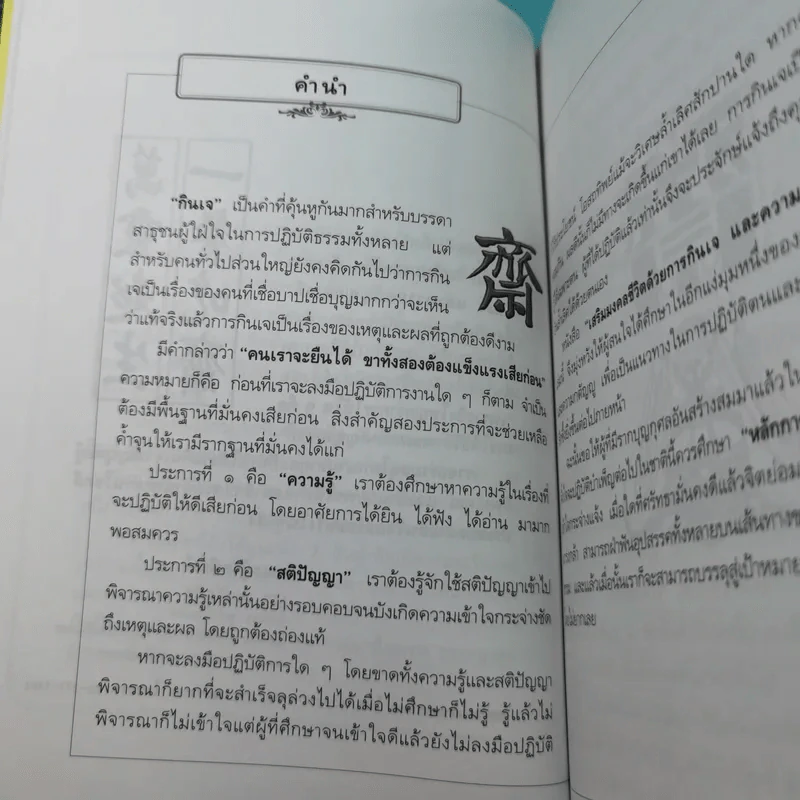 คำนำ
"กินเจ" เป็นคำที่คุ้นหูกันมากสำหรับบรรดา
สาธุชนผู้ใฝ่ใจในการปฏิบัติธรรมทั้งหลาย แต่
สำหรับคนทั่วไปส่วนใหญ่ยังคงคิดกันไปว่าการกิน
เจเป็นเรื่องของคนที่เชื่อบาปเชื่อบุญมากกว่าจะเห็น
ว่าแท้จริงแล้วการกินเจเป็นเรื่องของเหตุและผลที่ถูกต้องดีงาม
齋
มีคำกล่าวว่า "คนเราจะยืนได้ ขาทั้งสองต้องแข็งแรงเสียก่อน"
ความหมายก็คือ ก่อนที่เราจะลงมือปฏิบัติการงานใด ๆ ก็ตาม จำเป็น
ต้องมีพื้นฐานที่มั่นคงเสียก่อน สิ่งสำคัญสองประการที่จะช่วยเหลือ
ค้ำจุนให้เรามีรากฐานที่มั่นคงได้แก่
ประการที่ ๑ คือ "ความรู้" เราต้องศึกษาหาความรู้ในเรื่องที่
จะปฏิบัติให้ดีเสียก่อน โดยอาศัยการได้ยิน ได้ฟัง ได้อ่าน มามาก
พอสมควร
ประการที่ ๒ คือ "สติปัญญา" เราต้องรู้จักใช้สติปัญญาเข้าไป
พิจารณาความรู้เหล่านั้นอย่างรอบคอบจนบังเกิดความเข้าใจกระจ่างชัด
ถึงเหตุและผล โดยถูกต้องถ่องแท้
หากจะลงมือปฏิบัติการใด ๆ โดยขาดทั้งความรู้และสติปัญญา
พิจารณาก็ยากที่จะสำเร็จลุล่วงไปได้เมื่อไม่ศึกษาก็ไม่รู้ รู้แล้วไม่
พิจารณาก็ไม่เข้าใจแต่ผู้ที่ศึกษาจนเข้าใจดีแล้วยังไม่ลงมือปฏิบัติ
โอสถทิพย์แม้จะวิเศษล้ำเลิศสักปานใด หาก
ผลดีนั้นก็ไม่มีทางจะเกิดขึ้นแก่เขาได้เลย การกินเจเป็น
ผู้ที่ได้ปฏิบัติแล้วเท่านั้นจึงจะประจักษ์แจ้งถึงคุ
ได้ด้วยตนเอง
หนังสือ "เสริมมงคลชีวิตด้วยการกินเจ และความ
จึงมุ่งหวังให้ผู้สนใจได้ศึกษาในอีกแง่มุมหนึ่งของ
ความกตัญญู เพื่อเป็นแนวทางในการปฏิบัติตนและ
ต่อไปภายหน้า
ฉะนั้นขอให้ผู้ที่มีรากบุญกุศลอันสร้างสมมาแล้วใน
จะปฏิบัติบำเพ็ญต่อไปในชาตินี้ควรศึกษา "หลักการ
กระจ่างแจ้ง เมื่อใดที่ศรัทธามั่นคงดีแล้วจิตย่อม
สามารถฝ่าฟันอุปสรรคทั้งหลายบนเส้นทางข
และแล้วเมื่อนั้นเราก็จะสามารถบรรลุสู่เป้าหมาย
ไม่ยากเลย